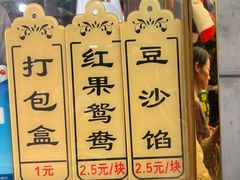 打包盒
1元
红果鸳鸯
2.5元/块
豆沙馅
2.5元/块